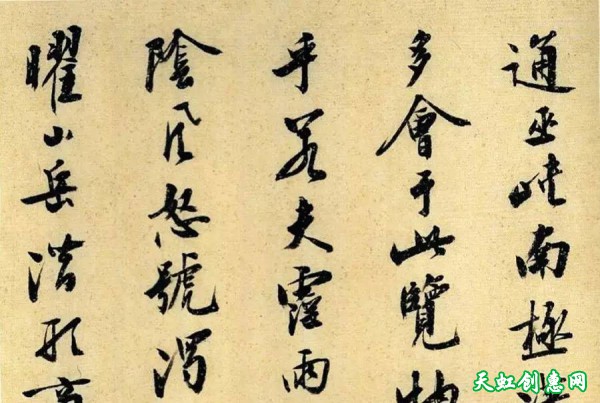 通巫峽南極
多會于此覽物
乎若夫霪雨
陰風怒號濁
曜山岳潛形
天虹创惠网